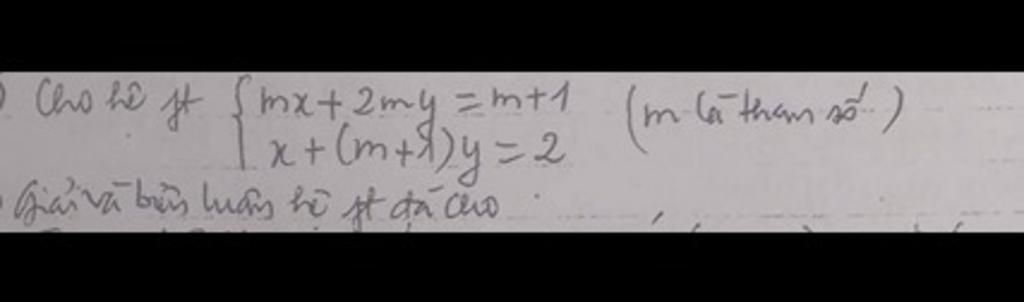 Cho hệ pt { mx + 2my = m+1 (m là tham số)
x + (m+1)y = 2
Giải và biện luận hệ pt đã cho